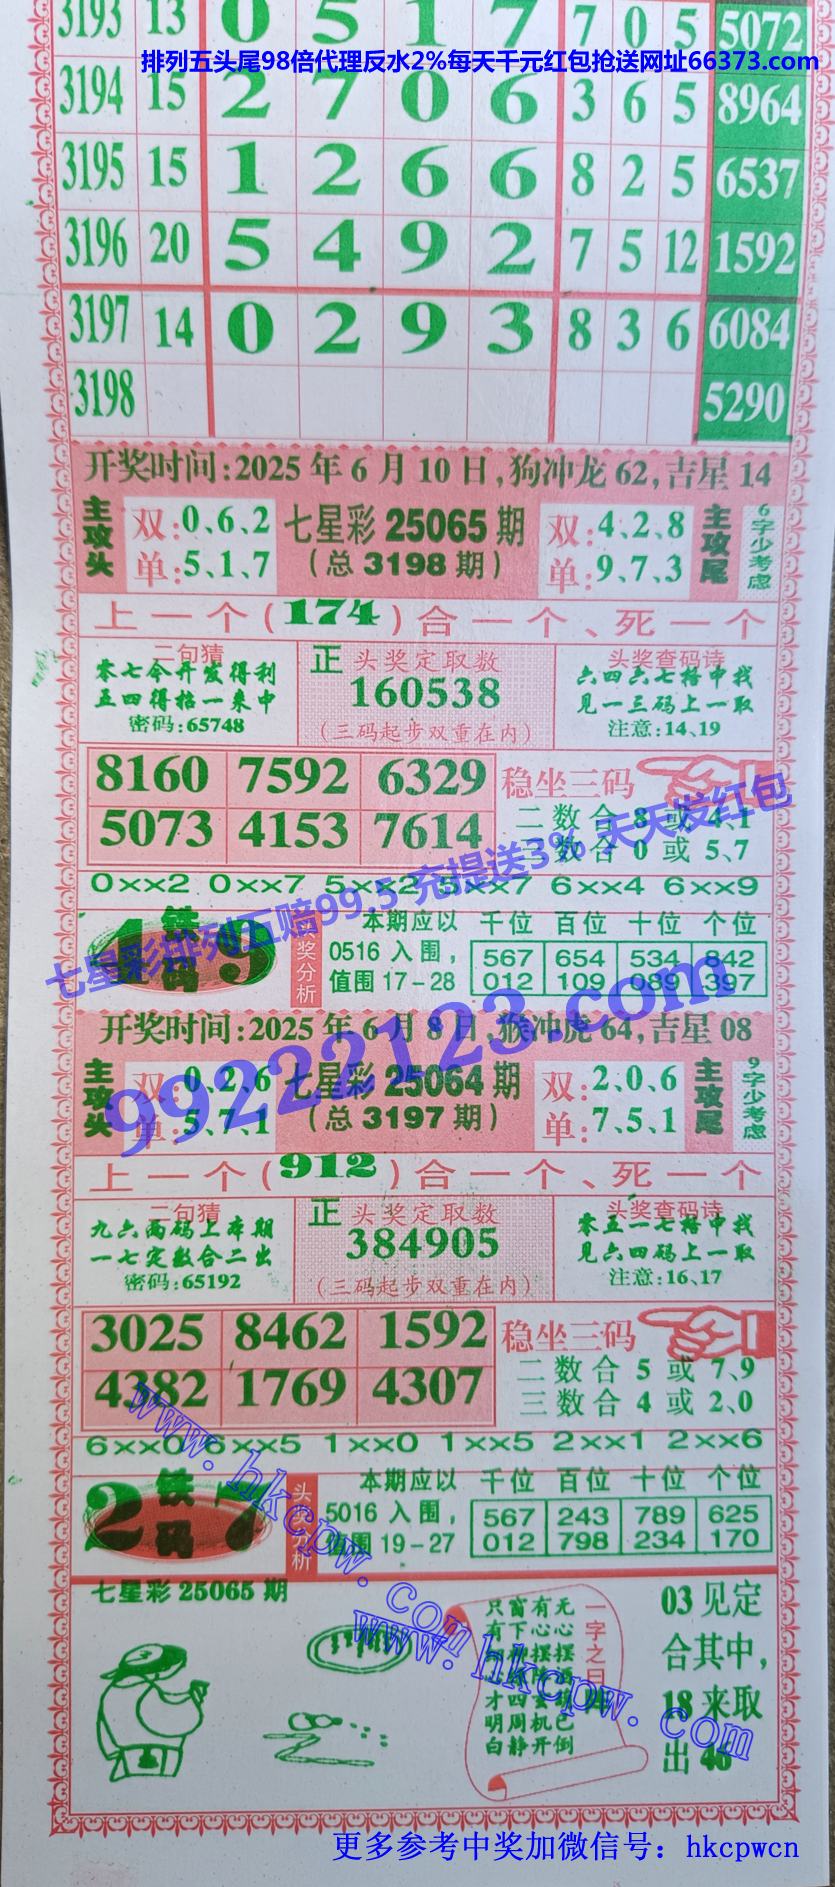 3193 13 0 5 1 7 7 0 5 5072
排列五头尾98倍代理反水2%每天千元红包抢送网址66373.com
3194 15 2 7 0 6 3 6 5 8964
3195 15 1 2 6 6 8 2 5 6537
3196 20 5 4 9 2 7 5 12 1592
3197 14 0 2 9 3 8 3 6 6084
3198 5290
开奖时间:2025年6月10日,狗冲龙62,吉星14
主攻头
双:0、6、2
单:5、1、7
七星彩25065期
(总3198期)
双:4、2、8
单:9、7、3
主攻尾
6字少考虑
上一个(174)合一个、死一个
二句猜
零七今开发得利
五四得拾一来中
密码:65748
正 头奖定取数
160538
(三码起步双重在内)
头奖查码诗
六四六七格中找
见一三码上一取
注意:14、19
8160 7592 6329
5073 4153 7614
稳坐三码
二数合8或4、1
数合0或5、7
七星彩排列五赔99.5 充提送3% 天天发红包
0××2 0××7 5××2 5××7 6××4 6××9
4 铁码 9
奖分析
本期应以
0516入围,
值围17-28
千位 百位 十位 个位
567 654 534 842
012 109 089 397
99222123.com
开奖时间:2025年6月8日,猴冲虎64,吉星08
主攻头
双:0、2、6
单:5、7、1
七星彩25064期
(总3197期)
双:2、0、6
单:7、5、1
主攻尾
9字少考虑
上一个(912)合一个、死一个
二句猜
九六两码上本期
一七定数合二出
密码:65192
正 头奖定取数
384905
(三码起步双重在内)
头奖查码诗
零五一七格中找
见六四码上一取
注意:16、17
3025 8462 1592
4382 1769 4307
稳坐三码
二数合5或7、9
三数合4或2、0
6××0 6××5 1××0 1××5 2××1 2××6
2 铁码 7
头奖分析
本期应以
5016入围,
值围19-27
千位 百位 十位 个位
567 243 789 625
012 798 234 170
www.hkcpw.com
七星彩25065期
一字之曰
无心摆
有心摆
窗下
只有
才明白
四周静
机开
已倒
www.hkcpw.com
03见定
合其中,
18来取
出46
更多参考中奖加微信号：hkcpwcn